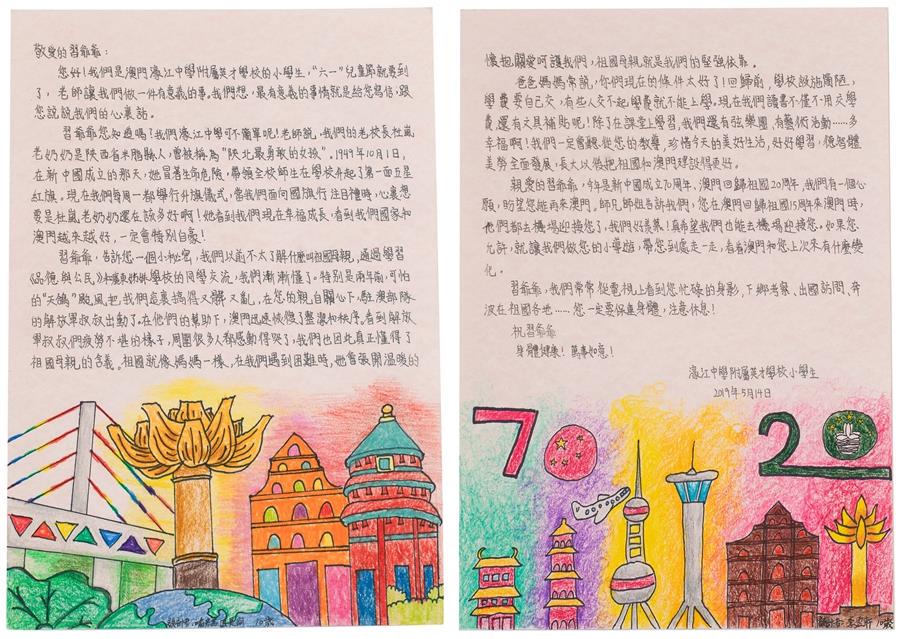 敬愛的習爺爺：
您好！我們是澳門濠江中學附屬英才學校的小學生，“六一”兒童節就要到
了，老師讓我們做一件有意義的事。我們想，最有意義的事情就是給您寫信，跟
您說說我們的心裏話。
習爺爺您知道嗎！我們濠江中學可不簡單呢！老師說，我們的老校長杜嵐
老奶奶是陝西省米脂縣人，曾被稱為“陝北最勇敢的女孩”。1949年10月1日，
在新中國成立的那天，她冒著生命危險，帶領全校師生在學校升起了第一面五星
紅旗。現在我們每周一都舉行升旗儀式，當我們面向國旗行注目禮時，心裏想
要是杜嵐老奶奶還在該多好啊！她看到我們現在幸福成長，看到我們國家和
澳門越來越好，一定會特別自豪！
習爺爺，告訴您一個小秘密，我們以前不太了解什麼叫祖國母親，通過學習
《品德與公民》和學校的同學交流，我們漸漸懂了。特別是兩年前，可怕
的“天鴿”颱風，把我們這裏搞得又髒又亂，在您的親自關心下，駐澳部隊
的解放軍叔叔出動了。在他們的幫助下，澳門迅速恢復了整潔和秩序。看到解放
軍叔叔們疲勞不堪的樣子，周圍很多人都感動得哭了，我們也因此真正懂得了
祖國母親的含義。祖國就像媽媽一樣，在我們遇到困難時，她會張開溫暖的
10歲
懷抱，關愛呵護我們，祖國母親就是我們的堅強依靠。
爸爸媽媽常說，你們現在的條件太好了！回歸前，學校設施簡陋，
學費要自己交，有些人交不起學費就不能上學。現在我們讀書不僅不用交學
費，還有文具補貼呢！除了在課堂上學習，我們還有弦樂團，有藝術活動……多
幸福啊！我們一定會聽從您的教導，珍惜今天的美好生活，好好學習，德智體
美勞全面發展，長大以後把祖國和澳門建設得更好。
親愛的習爺爺，今年是新中國成立70周年、澳門回歸祖國20周年，我們有一個心
願，盼望您能再來澳門。師兄師姐告訴我們，您在澳門回歸祖國15周年來澳門時，
他們都去機場迎接您了，我們好羨慕！真希望我們也能去機場迎接您。如果您
允許，就讓我們做您的小導遊，帶您到處走一走，看看澳門和您上次來有什麼變
化。
習爺爺，我們常常從電視上看到您忙碌的身影，下鄉考察、出國訪問、奔
波在祖國各地……您一定要保重身體，注意休息！
祝習爺爺
身體健康！萬事如意！
濠江中學附屬英才學校小學生
2019年5月14日
70
20
10歲